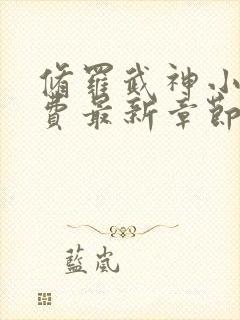 脩羅武神小
費最新章節
藍嵐